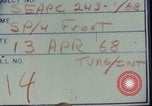 SEAPC 243-1/68
SP/4 Frost
13 APR 68
TUNG/INT
14